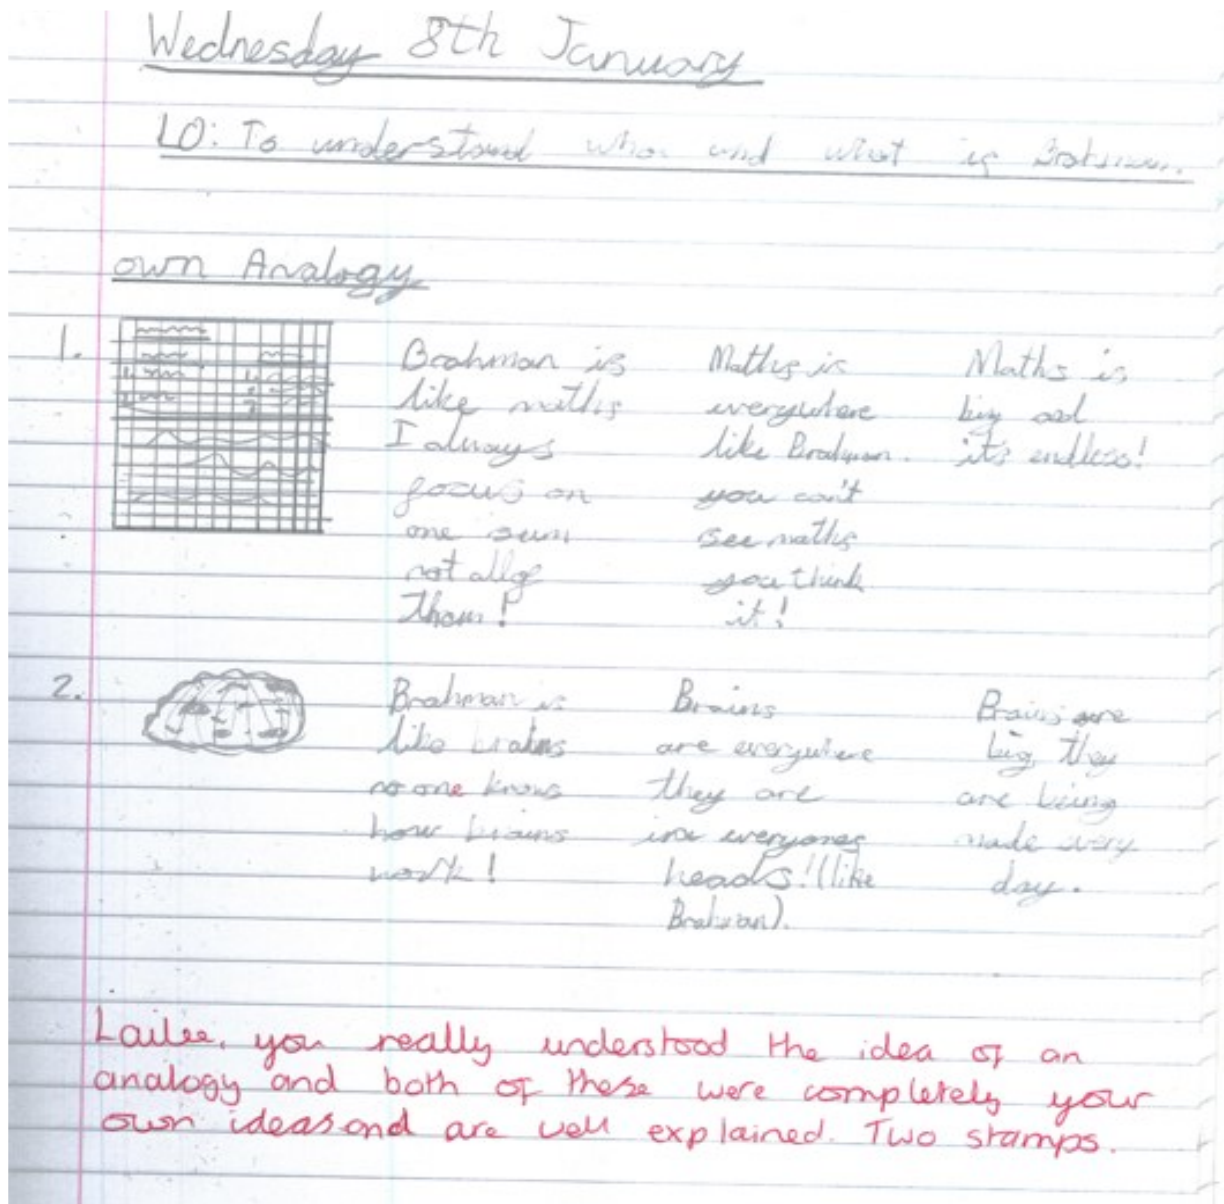 Wednesday 8th January
LO: To understand who and what is Brahman.
own Analogy
1.
Brahman is
like maths
I always
focus on
one sum
not all of
them!
Maths is
everywhere
like Brahman.
you can't
see maths
you think
it!
Maths is
big and
it's endless!
2.
Brahman is
like brains
no one knows
how brains
work!
Brains
are everywhere
they are
in everyones
heads! (like
Brahman).
Brains are
big, they
are being
made every
day.
Lailee, you really understood the idea of an
analogy and both of these were completely your
own ideas and are well explained. Two stamps.